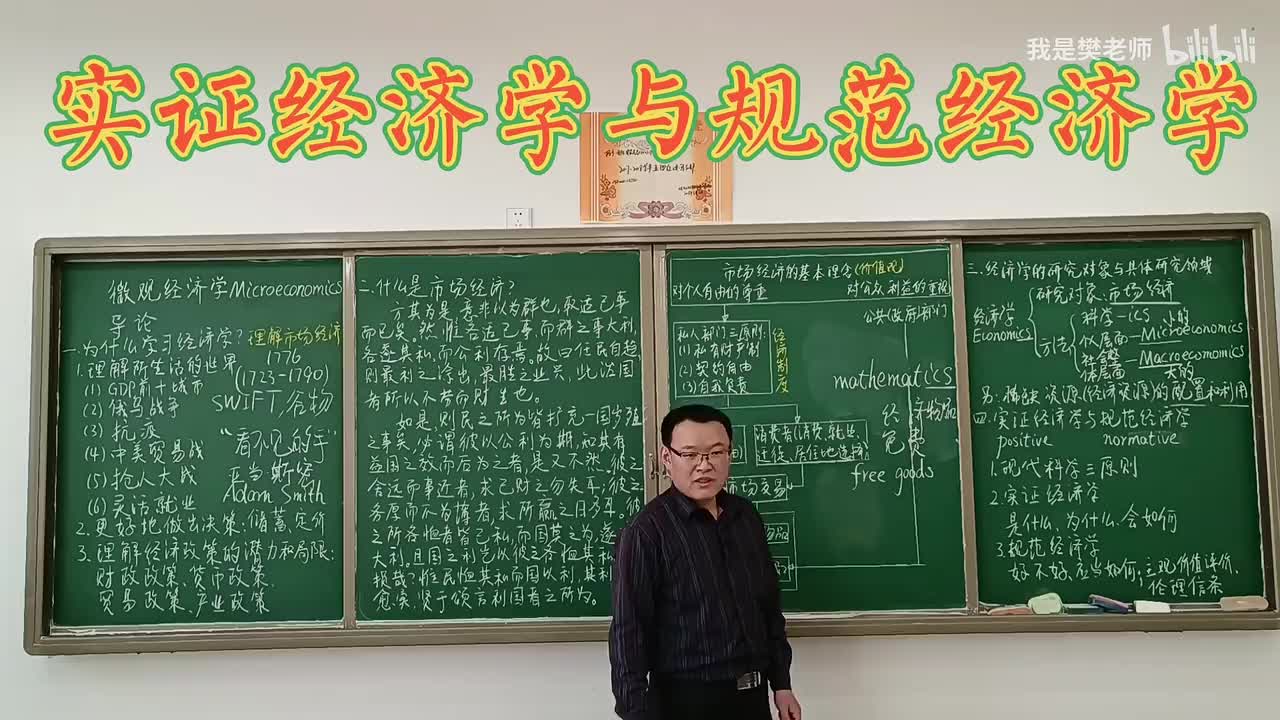 我是樊老师 bilibili
实证经济学与规范经济学
微观经济学Microeconomics
导论
一.为什么学习经济学? 理解市场经济
1.理解所生活的世界
1776
(1723-1790)
(1) GDP前十城市
(2) 俄乌战争
SWIFT,谷物
(3) 抗疫
(4) 中美贸易战
"看不见的手"
(5) 抢人大战
亚当·斯密
Adam Smith
(6) 灵活就业
2.更好地做出决策:储蓄,定价
3.理解经济政策的潜力和局限:
财政政策、货币政策、
贸易政策、产业政策
二.什么是市场经济?
方其为是,意非以为群也,取适己事
而已矣。然惟各适己事,而群之事大利,
各遂其私,而公利存焉。故曰任民自趋,
则最利之涂出,最胜之业兴,此法国
者所以不劳而财生也。
如是,则民之所为皆扩充一国岁殖
之事矣,必谓彼以公利为期,知其有
益国之效而后为之者,是又不然。彼之
舍远而事近者,求己财之勿失耳;彼之
务厚而不为薄者,求所赢之日多耳。彼
之所各恤者皆己私,而国其之为,遂
大利,且国之利岂以彼之各恤其私
损哉?惟民恤其私而国以利,其利
愈实,贤于颂言利国者之所为。
市场经济的基本理念(价值观)
对个人自由的尊重
对公众利益的重视
公共(政府)部门
私人部门三原则:
(1)私有财产制
(2)契约自由
(3)自我负责
经济制度
mathematics
经济物品
免费
free goods
消费者(消费、就业、
迁徙、居住地选择)
市场交易
三.经济学的研究对象与具体研究领域
经济学
Economics
研究对象:市场经济
方法
科学—ics 小的
从层面—Microeconomics
社会整体层面—Macroeconomics
大的
另:稀缺资源(经济资源)的配置和利用
四.实证经济学与规范经济学
positive normative
1.现代科学三原则
2.实证经济学
是什么、为什么、会如何
3.规范经济学
好不好、应当如何;主观价值评价、
伦理信条